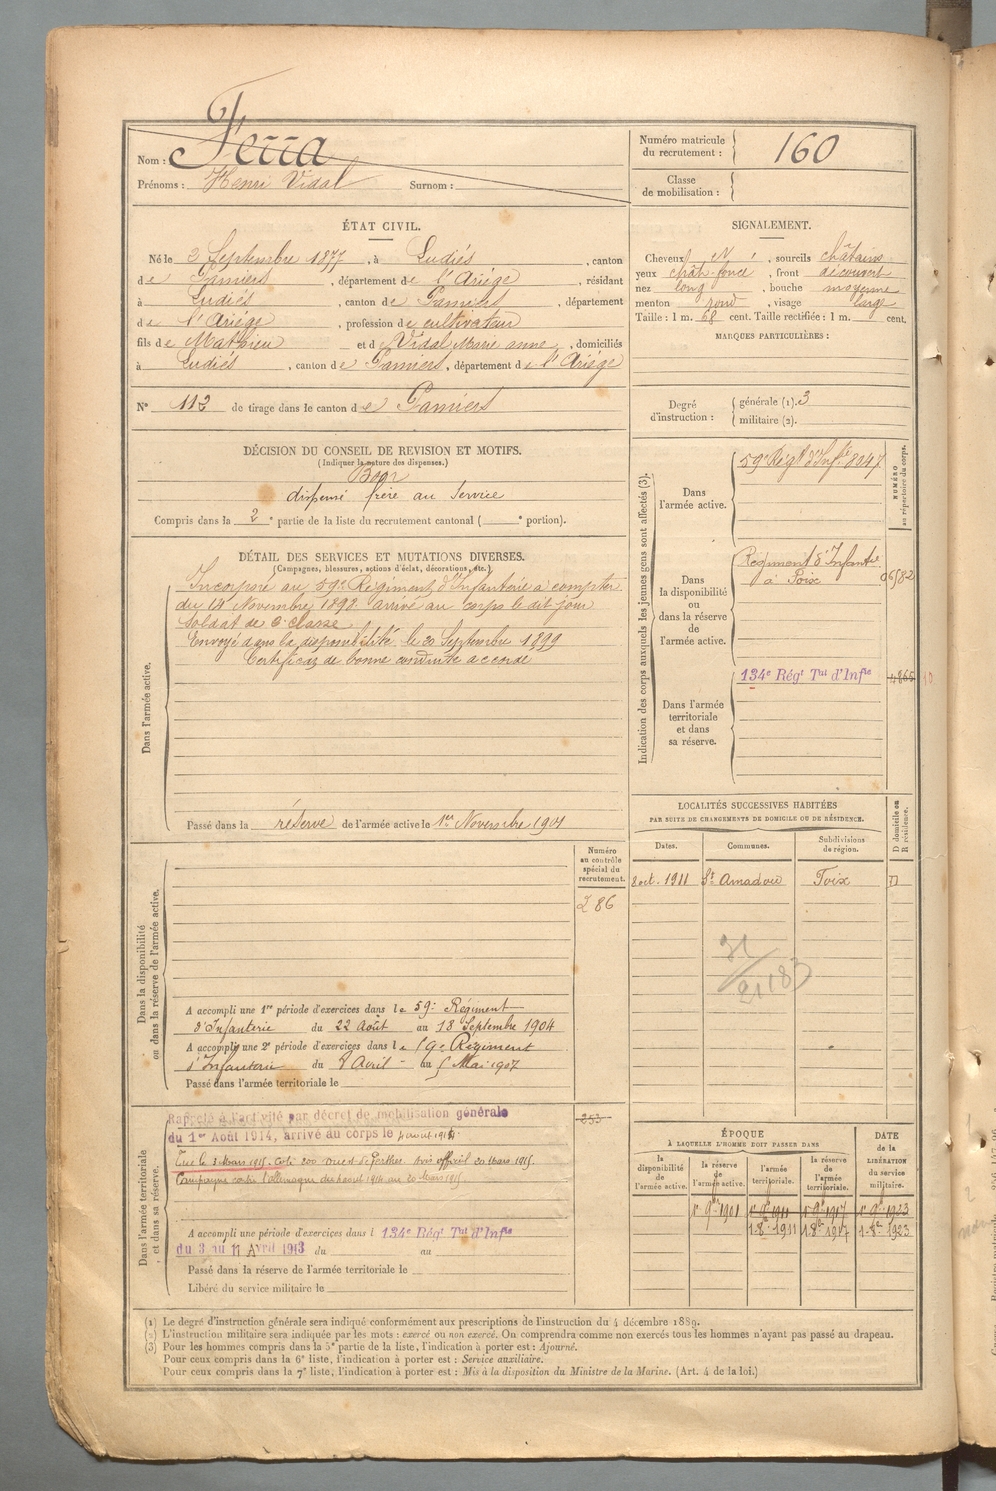 Nom : Ferra
Prénoms : Henri Vidal Surnom :
Numéro matricule du recrutement : 160
Classe de mobilisation :
ÉTAT CIVIL.
Né le 3 Septembre 1877, à Ludiés, canton
de Pamiers, département de l'Ariége, résidant
à Ludiés, canton de Pamiers, département
de l'Ariége, profession de cultivateur
fils de Mathieu et de Vidal Marie anne, domiciliés
à Ludiés, canton de Pamiers, département de l'Ariége
N° 112 de tirage dans le canton de Pamiers
SIGNALEMENT.
Cheveux, sourcils châtains
yeux chât-foncé, front découvert
nez long, bouche moyenne
menton rond, visage large
Taille : 1 m. 68 cent. Taille rectifiée : 1 m. cent.
MARQUES PARTICULIÈRES :
Degré d'instruction : générale (1). 3
militaire (2).
DÉCISION DU CONSEIL DE REVISION ET MOTIFS.
(Indiquer la nature des dispenses.)
Bon
dispensé frère au service
Compris dans la 2e partie de la liste du recrutement cantonal ( e portion).
DÉTAIL DES SERVICES ET MUTATIONS DIVERSES.
(Campagnes, blessures, actions d'éclat, décorations, etc.)
Dans l'armée active.
Incorporé au 59e Régiment d'Infanterie à compter
du 14 Novembre 1898 arrivé au corps le dit jour
Soldat de 2e classe
Envoyé dans la disponibilité le 20 Septembre 1899
Certificat de bonne conduite accordé
Passé dans la réserve de l'armée active le 1er Novembre 1901
Indication des corps auxquels les jeunes gens sont affectés (3).
NUMÉRO au répertoire du corps.
Dans l'armée active.
59e Régt d'Infie 8247
Dans la disponibilité ou dans la réserve de l'armée active.
Régiment d'Infantie
à Foix
06582
134e Régt Tal d'Infie
Dans l'armée territoriale et dans sa réserve.
LOCALITÉS SUCCESSIVES HABITÉES
PAR SUITE DE CHANGEMENTS DE DOMICILE OU DE RÉSIDENCE.
D domicile ou R résidence.
Dates. Communes. Subdivisions de région.
8 oct. 1911 St Amadou Foix D
21183
Numéro au contrôle spécial du recrutement.
286
Dans la disponibilité ou dans la réserve de l'armée active.
A accompli une 1re période d'exercices dans le 59e Régiment
d'Infanterie du 22 Août au 18 Septembre 1904
A accompli une 2e période d'exercices dans le 59e Régiment
d'Infanterie du 8 Avril au 5 Mai 1907
Passé dans l'armée territoriale le
253
Dans l'armée territoriale et dans sa réserve.
Rappelé à l'activité par décret de mobilisation générale
du 1er Août 1914, arrivé au corps le 4 aout 1914
Tué le 3 Mars 1915. Cote 200 ouest de Perthes avis officiel 20 Mars 1915.
Campagne contre l'allemagne du 4 aout 1914 au 20 Mars 1915
A accompli une période d'exercices dans l 134e Régt Tal d'Infie
du 3 au 11 Avril 1913 du au
Passé dans la réserve de l'armée territoriale le
Libéré du service militaire le
ÉPOQUE
À LAQUELLE L'HOMME DOIT PASSER DANS
la disponibilité de l'armée active. la réserve de l'armée active. l'armée territoriale. la réserve de l'armée territoriale.
DATE de la LIBÉRATION du service militaire.
1r 9bre 1901 1r 9bre 1911 1r 9bre 1917 1r 9bre 1923
1-8bre 1911 1-8bre 1917 1-8bre 1923
(1) Le degré d'instruction générale sera indiqué conformément aux prescriptions de l'instruction du 4 décembre 1889.
(2) L'instruction militaire sera indiquée par les mots : exercé ou non exercé. On comprendra comme non exercés tous les hommes n'ayant pas passé au drapeau.
(3) Pour les hommes compris dans la 5e partie de la liste, l'indication à porter est : Ajourné.
Pour ceux compris dans la 6e liste, l'indication à porter est : Service auxiliaire.
Pour ceux compris dans la 7e liste, l'indication à porter est : Mis à la disposition du Ministre de la Marine. (Art. 4 de la loi.)